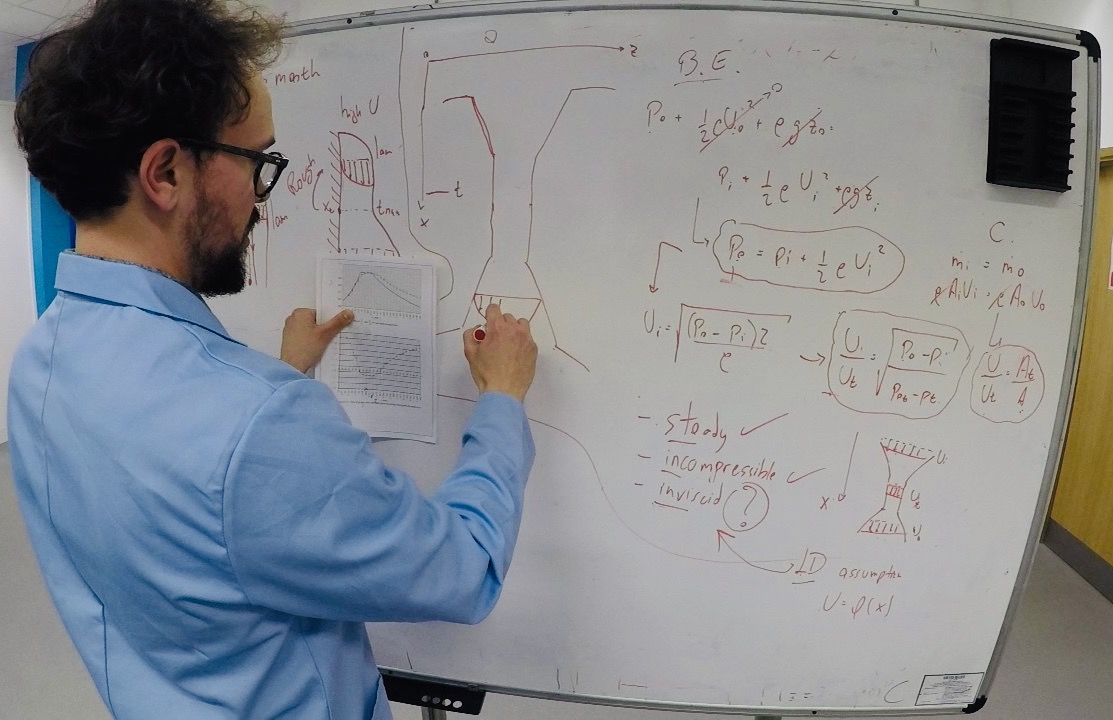 month
high U
lam
Rough
x
turb
lam
z
t
x
B.E.
P₀ + ½ρU₀² → 0 + ρgz₀ =
Pᵢ + ½ρUᵢ² + ρgzᵢ
P₀ = Pᵢ + ½ρUᵢ²
Uᵢ = √((P₀ - Pᵢ)2/ρ)
→ Uᵢ/Uₜ = √((P₀ - Pᵢ)/(P₀ₜ - Pₜ))
C.
ṁᵢ = ṁ₀
ρAᵢUᵢ = ρA₀U₀
U/Uₜ = Aₜ/A
- steady ✓
- incompressible ✓
- inviscid ?
x
Uᵢ
Uₜ
U
1D assumption
U = φ(x)